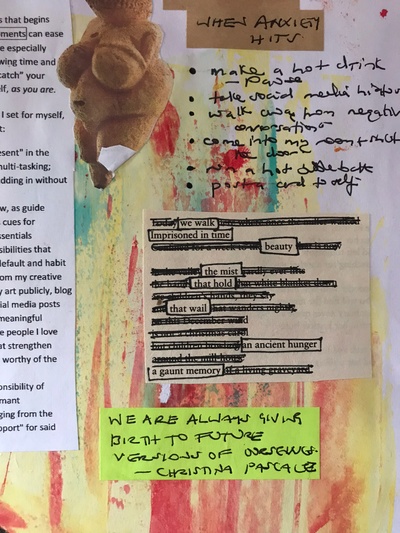 s that begins
ements can ease
e especially
wing time and
catch" your
lf, as you are.
I set for myself,
t:
esent" in the
multi-tasking;
dding in without
w, as guide
cues for
ssentials
sibilities that
default and habit
om my creative
y art publicly, blog
ial media posts
meaningful
e people I love
at strengthen
worthy of the
onsibility of
mant
ging from the
pport" for said
WHEN ANXIETY
HITS
• make a hot drink
• take social media
• walk away from negative
conversations
• come into my room + shut
the door
• run a hot
• post a card to self
we walk
Imprisoned in time
beauty
the mist
that hold
that wail
an ancient hunger
a gaunt memory
WE ARE ALWAYS GIVING
BIRTH TO FUTURE
VERSIONS OF OURSELVES.
— CHRISTINA PASCALE